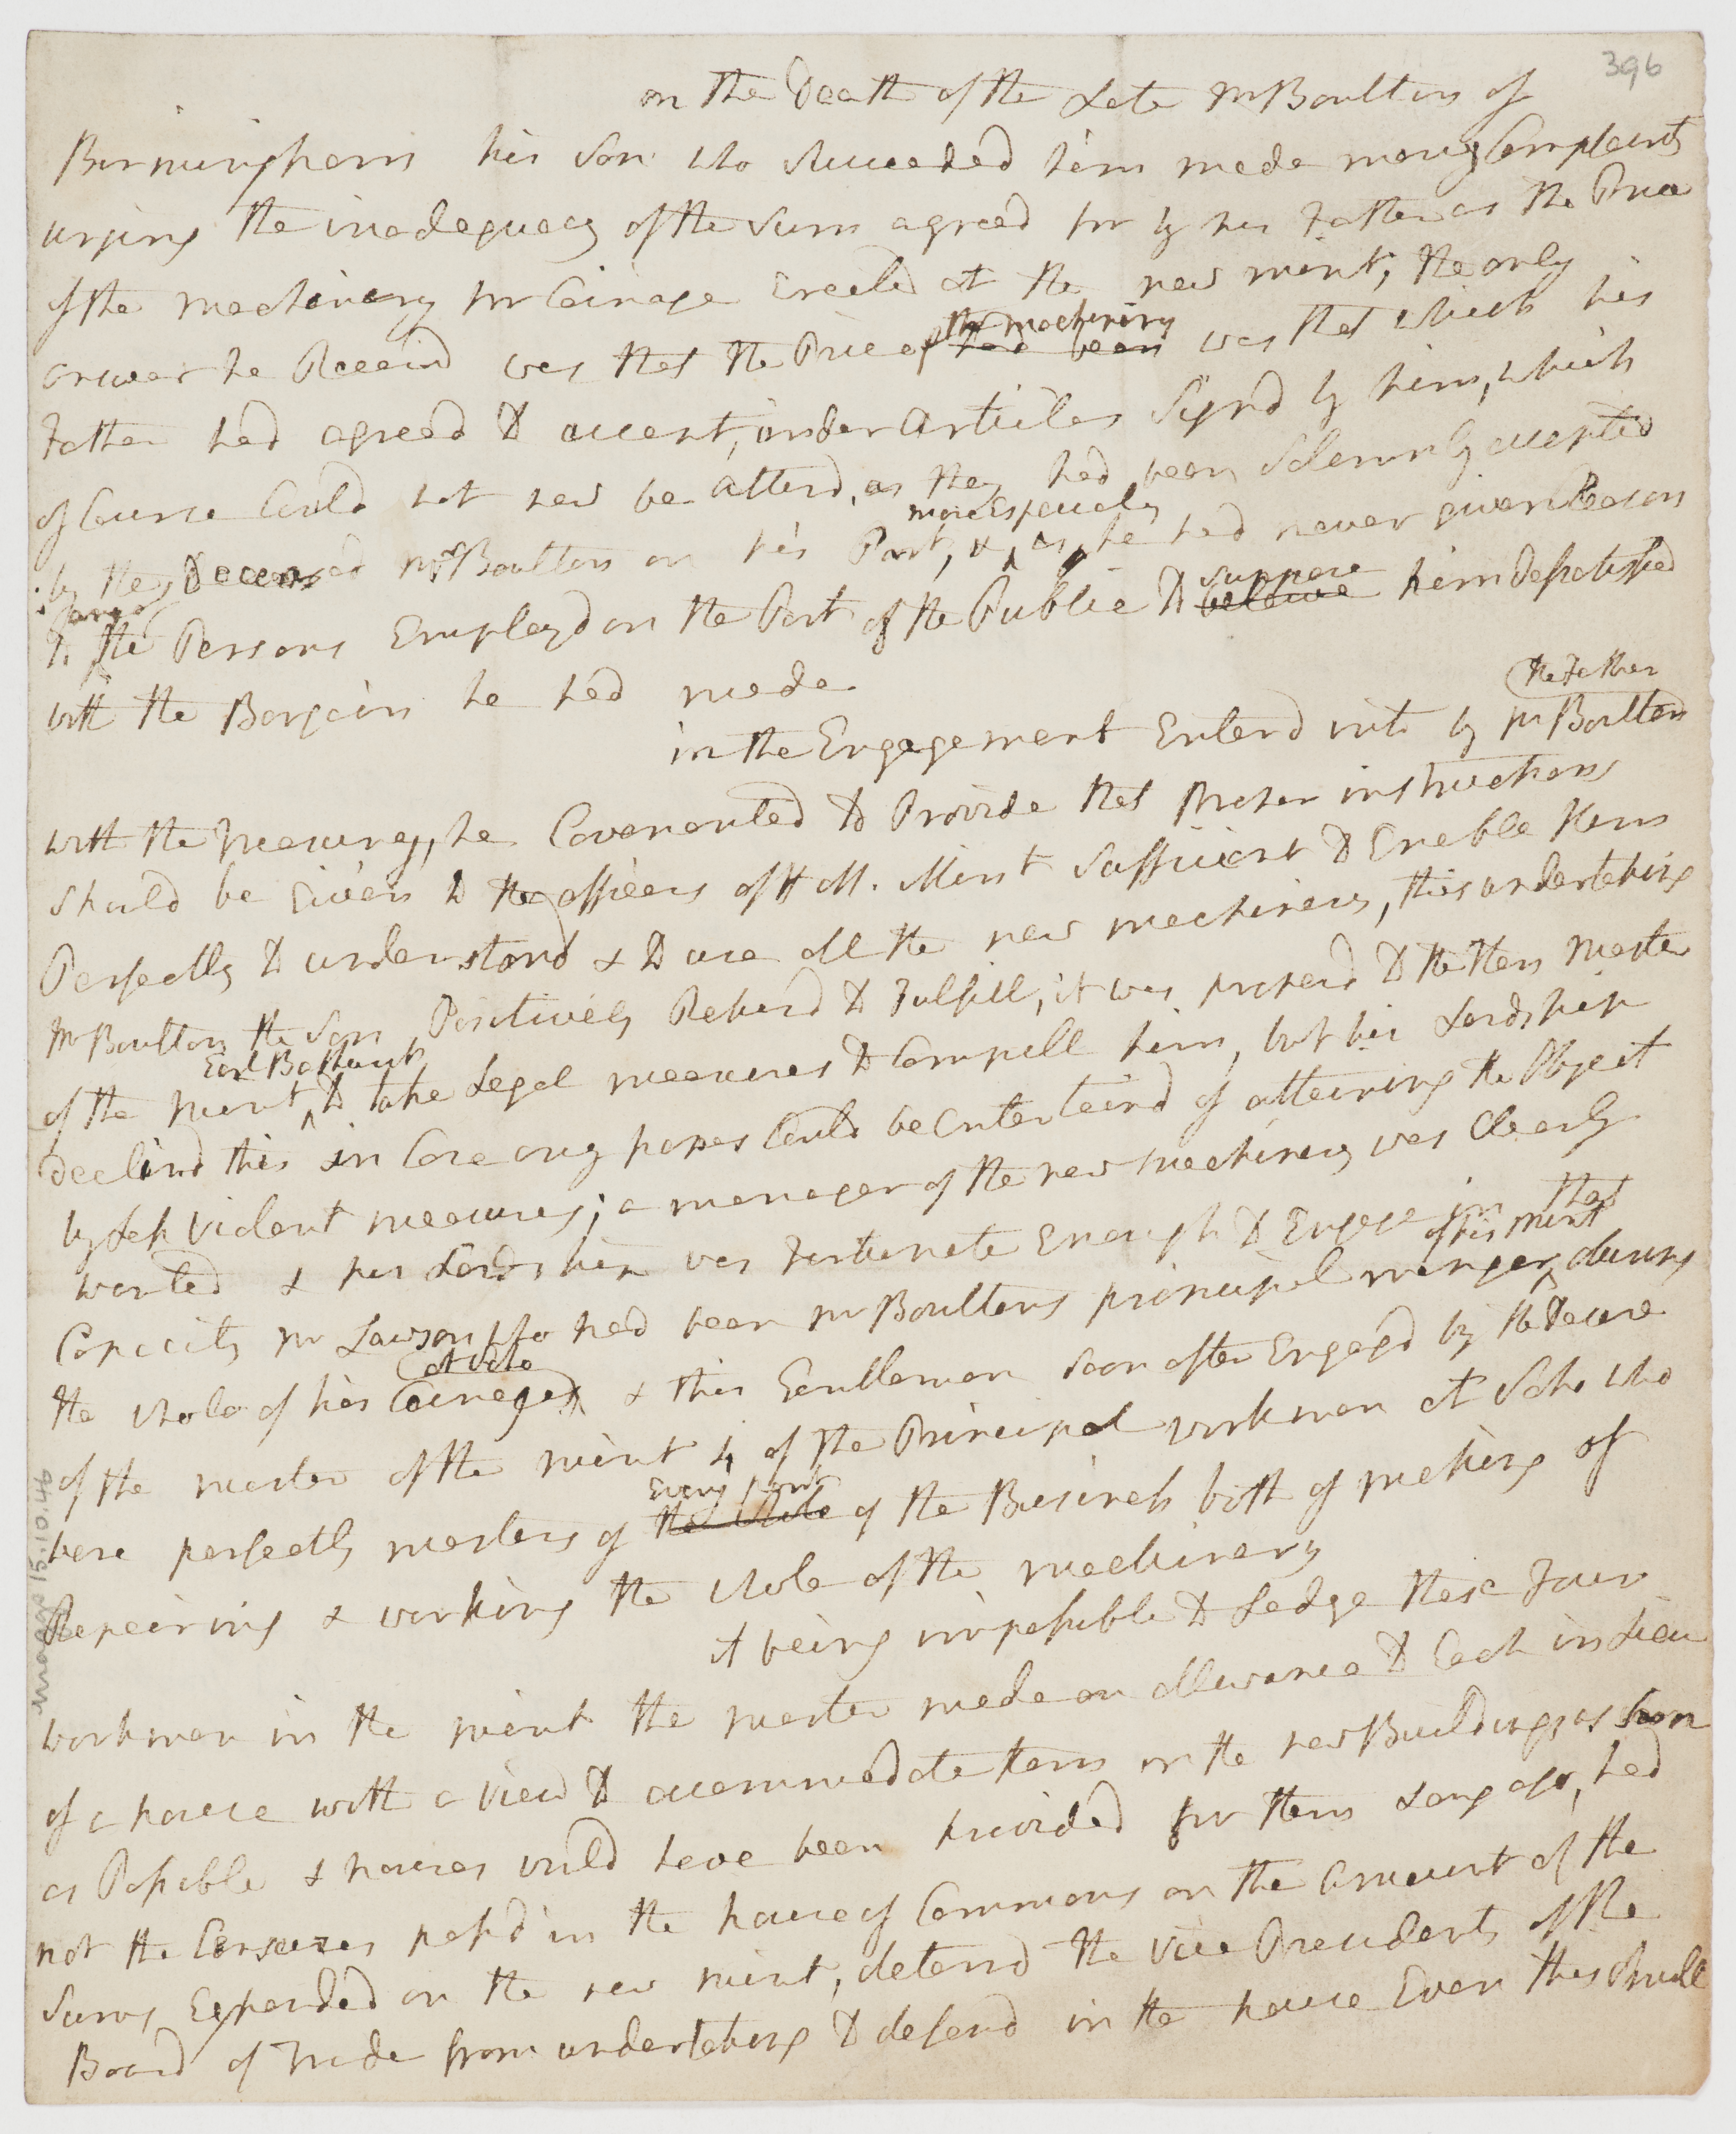 396
on the Death of the Late Mr Boulton of
Birmingham his Son who Succeeded him made many Complaints
urging the inadequacy of the Sum agreed for by his Father as the Price
of the machinery for Coinage Erected at the new mint, the only
the machinery
answer he Receivd was that the Price of had been was that which his
Father had agreed to accept, under articles Signd by him, which
of Course Could not now be alterd, as they had been Solemnly accepted
more Especialy
by the Deceased Mr Boulton on his Part, & as he had never given Reason
to the Persons Employd on the Part of the Public to believe him dissatisfied
suppose
with the Bargain he had made
the Father
in the Engagement Enterd into by Mr Boulton
with the Treasury, he Covenanted to Provide that proper instructions
should be Given to the officers of H M. Mint Sufficient to Enable them
Perfectly to understand & to use all the new machinery, this undertaking
Mr Boulton the Son Positively Refusd to Fulfill, it was proposd to the then Master
Earl Bathurst
of the mint to take Legal measures to Compell him, but his Lordship
declind this in Case any hopes Could be Entertaind of attaining the Object
by Less Violent measures; a manager of the new machinery was Clearly
wanted & his Lordship was Fortunate Enough to Engage in that
of his mint
Capacity Mr Lawson who had been Mr Boultons principal manager during
at Soho
the whole of his Coinages & this Gentleman soon after Engagd by the Desire
of the master of the mint 4 of the Principal workmen at Soho who
Every part
were perfectly masters of the whole of the Business both of making of
Repairing & working the whole of the machinery
it being impossible to Lodge these Four
workmen in the mint the master made an allowance to Each in Lieu
of a house with a view to accommodate them in the new Buildings as soon
as Possible & houses would have been provided for them Long ago, had
not the Censures passd in the house of Commons on the amount of the
Sums Expended on the new mint, deterrd the Vice Presidents of the
Board of Trade from undertaking to defend in the house Even this Small
museum 15.10.46